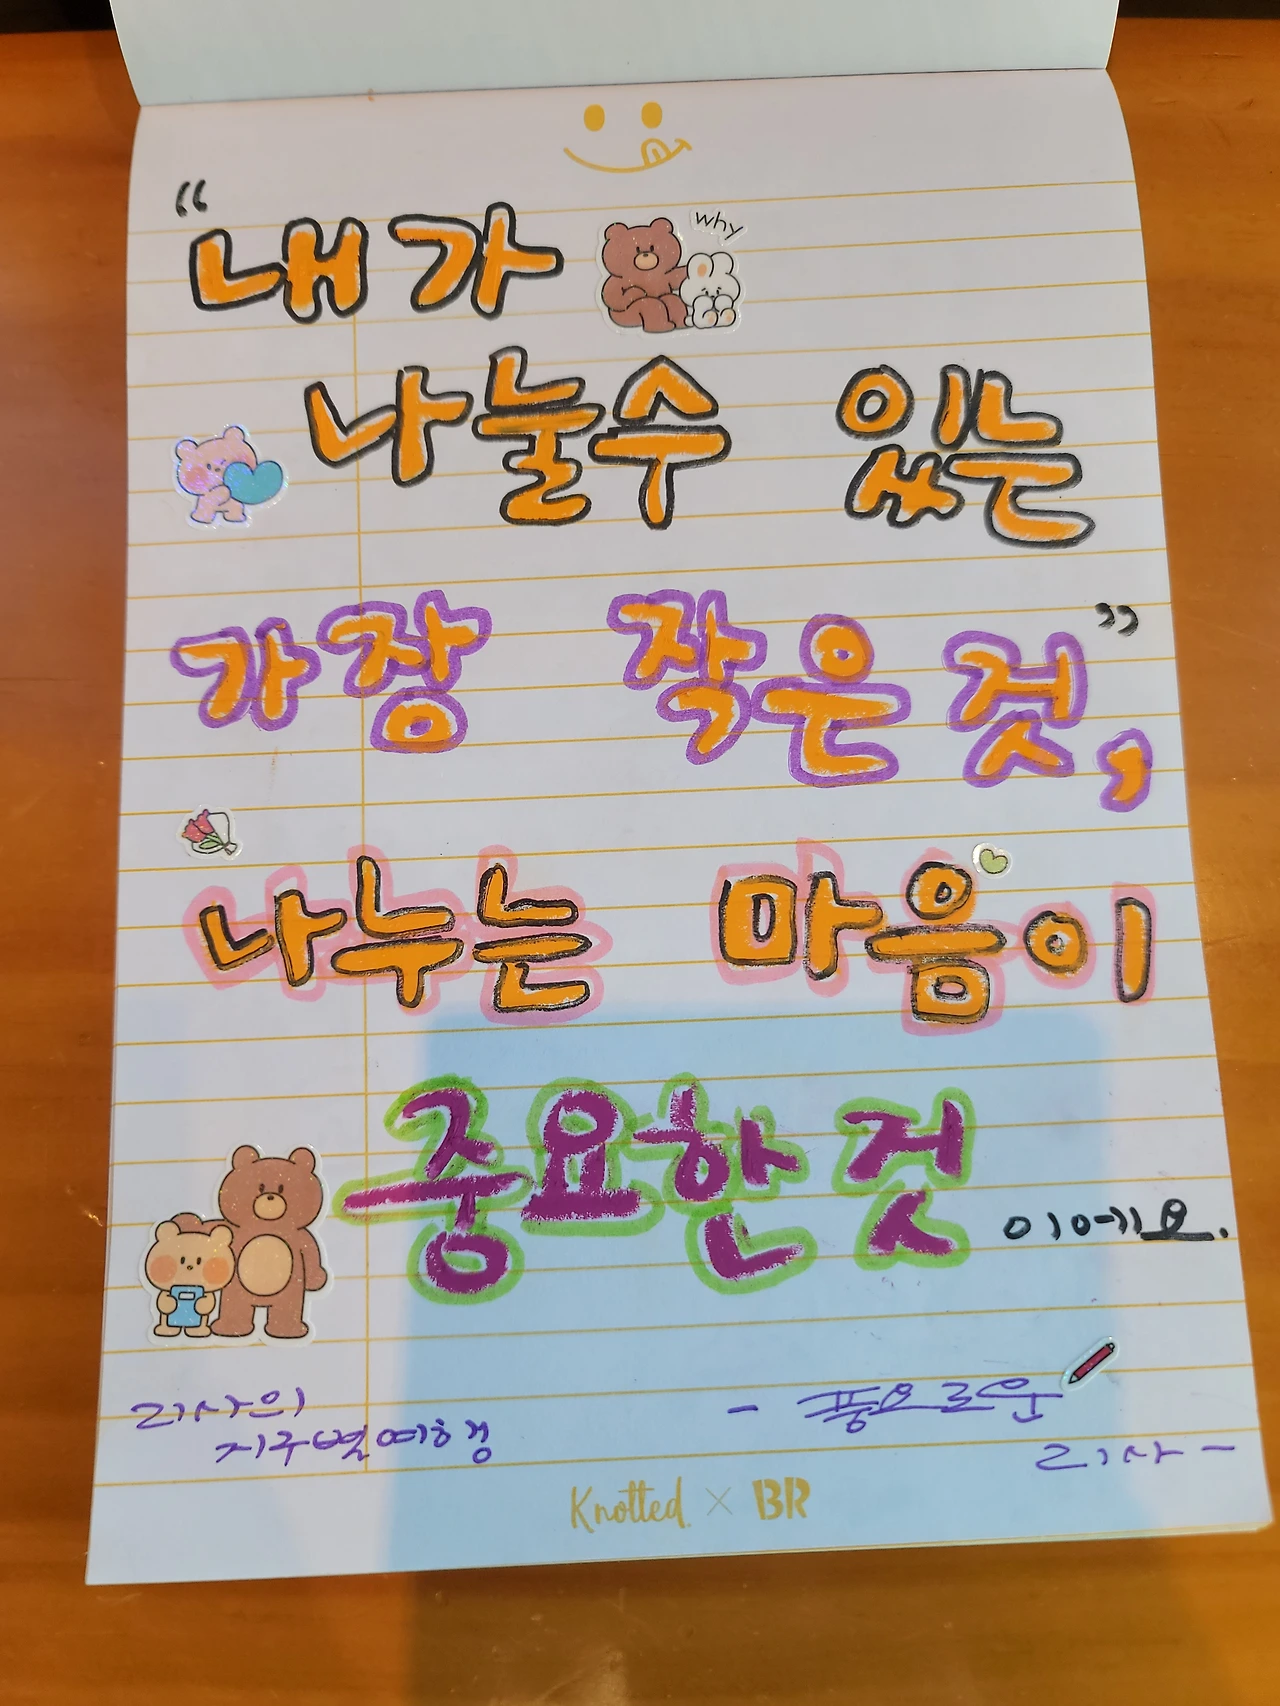 "내가
why
나눌수 있는
가장 작은 것",
나누는 마음이
중요한 것
이에요.
리사의
지구별여행
- 풍요로운
리사 -
Knotted. × BR